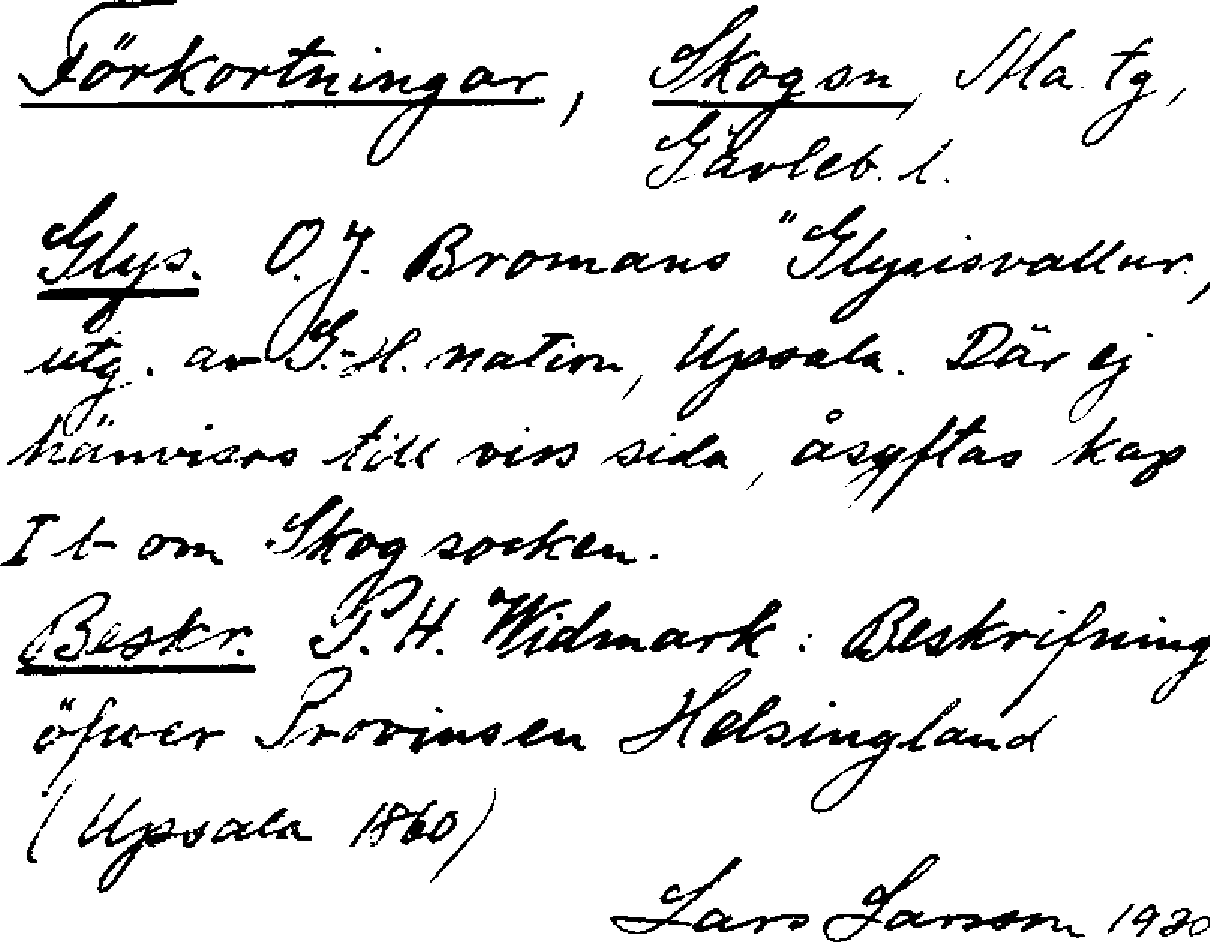 Förkortningar, Skog sn, Ala tg,
Gävleb. l.
Glys. O. J. Bromans "Glysisvallur,
utg. av G.-H. nation, Upsala. Där ej
hänvisas till viss sida, åsyftas kap
I b om Skog socken.
Beskr. P. H. Widmark: Beskrifning
öfwer Provinsen Helsingland
(Upsala 1860)
Lars Larsson 1920